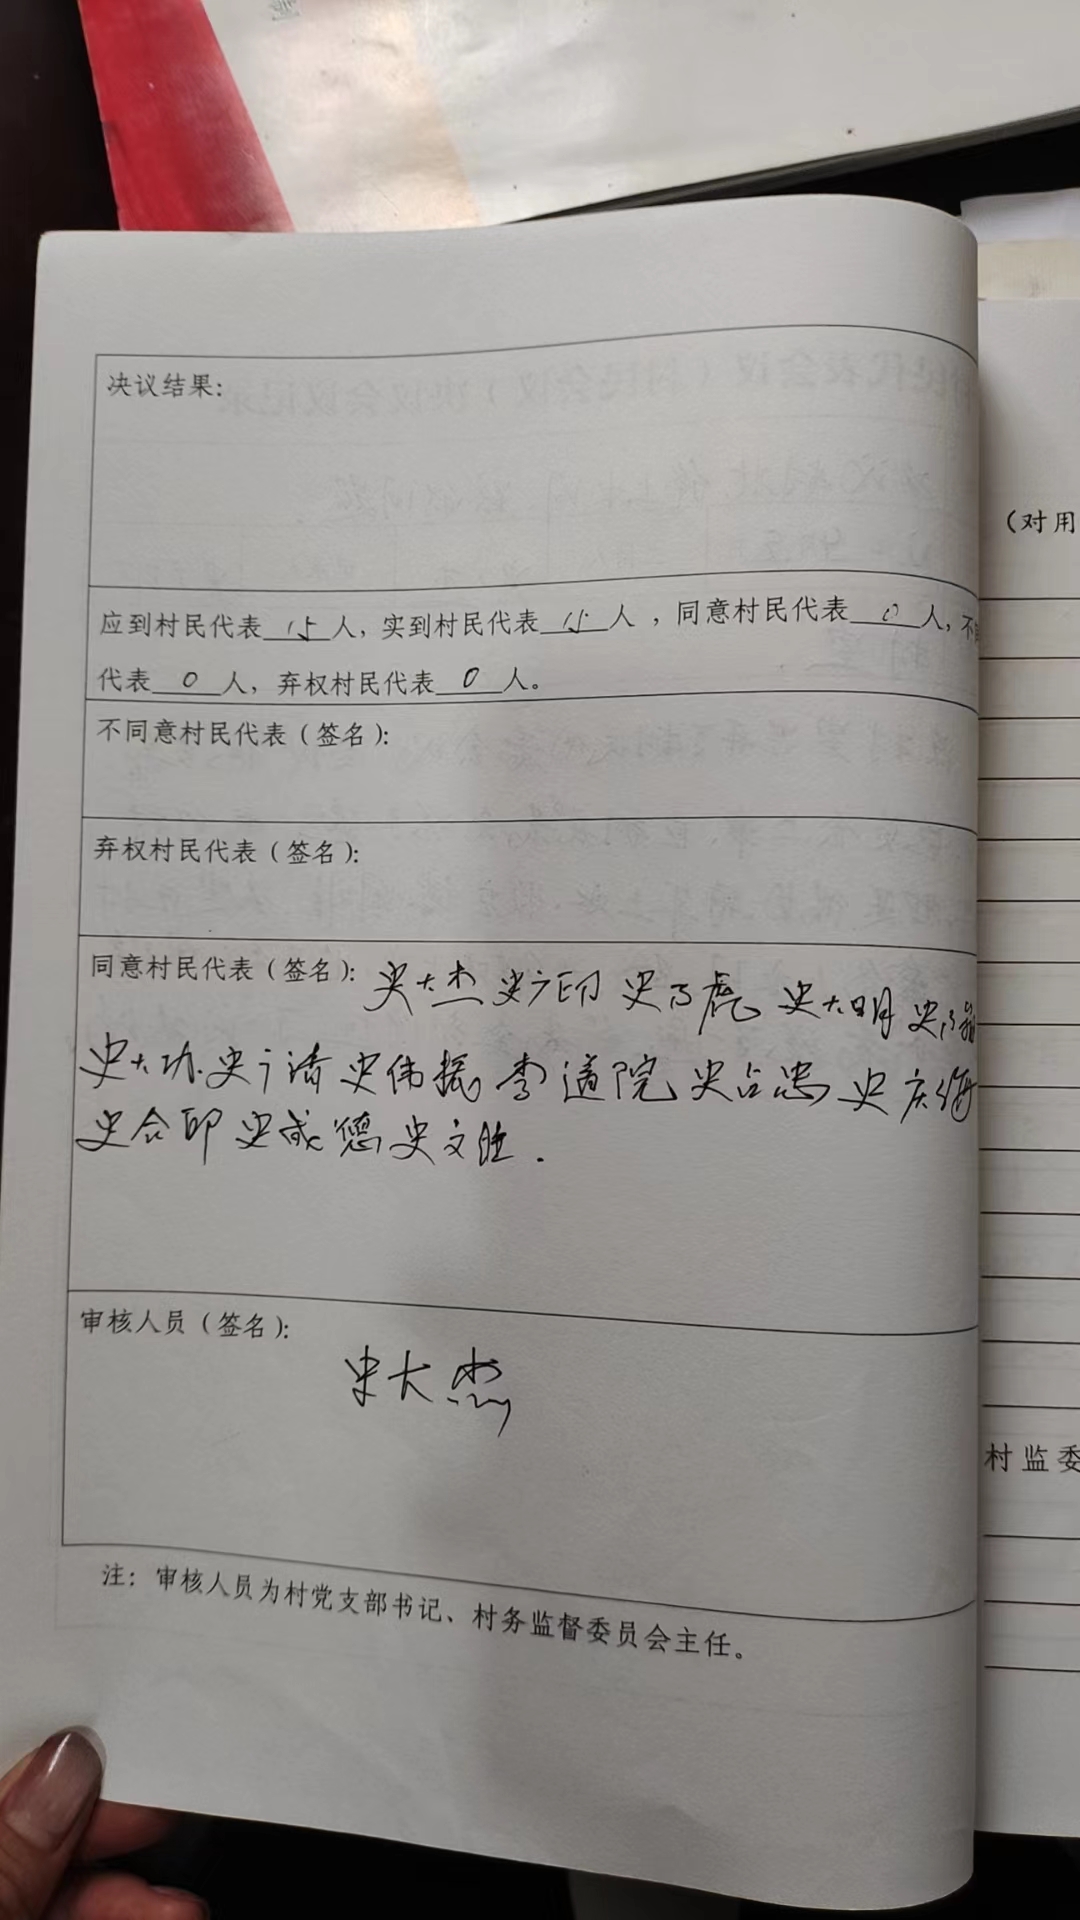 决议结果:
应到村民代表 15 人, 实到村民代表 15 人 , 同意村民代表 0 人, 不
代表 0 人, 弃权村民代表 0 人。
不同意村民代表(签名):
弃权村民代表(签名):
同意村民代表(签名): 史大杰 史广印 史乃虎 史大明 史乃
史大功 史广清 史伟振 李道院 史占忠 史庆海
史合印 史成德 史文胜.
审核人员(签名):
史大杰
注: 审核人员为村党支部书记、村务监督委员会主任。
(对用
村监委